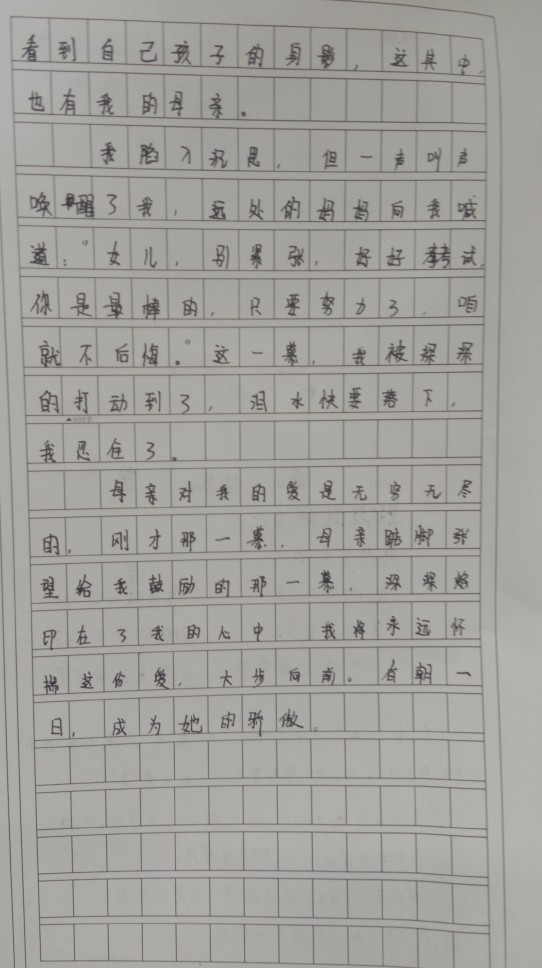 看到自己孩子的身影，这其中，
也有我的母亲。
我陷入沉思，但一声叫声
唤醒了我，远处的妈妈向我喊
道：“女儿，别紧张，好好考试，
你是最棒的，只要努力了，咱
就不后悔。”这一幕，我被深深
的打动到了，泪水快要落下，
我忍住了。
母亲对我的爱是无穷无尽
的，刚才那一幕，母亲踮脚张
望给我鼓励的那一幕，深深烙
印在了我的心中，我将永远怀
揣这份爱，大步向前。有朝一
日，成为她的骄傲。